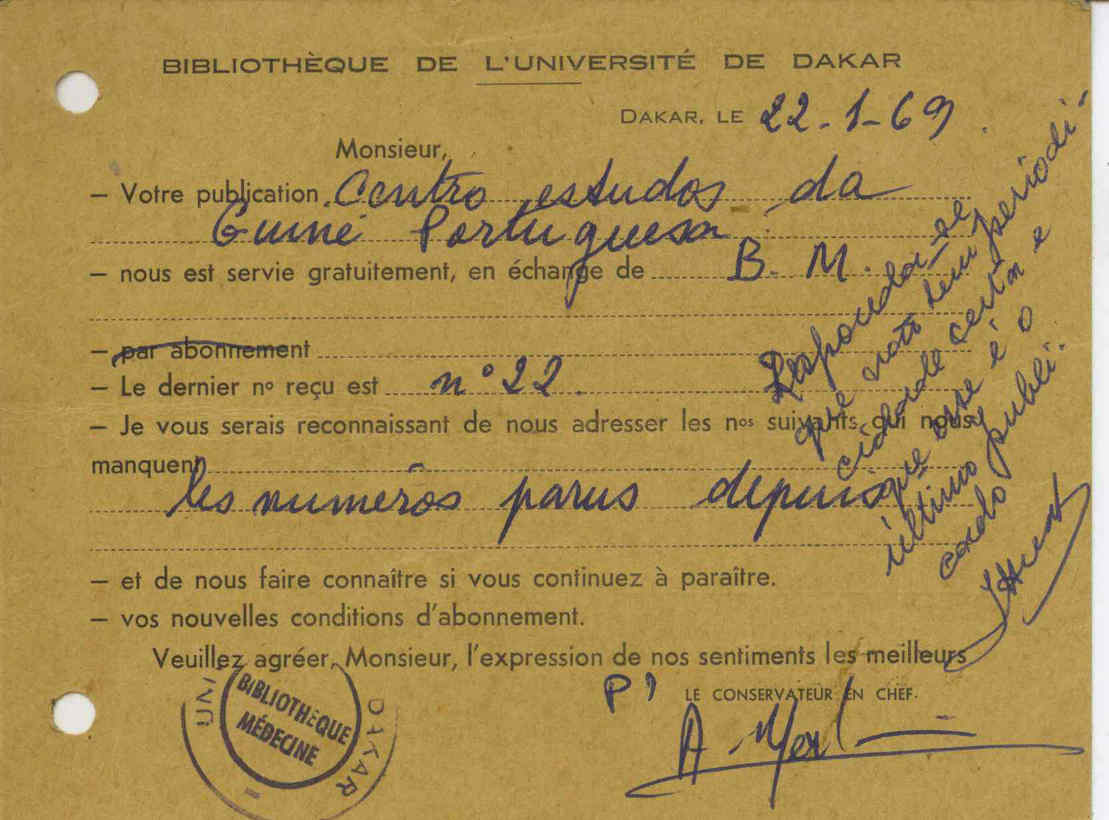 BIBLIOTHÈQUE DE L'UNIVERSITÉ DE DAKAR
DAKAR, LE 22-1-69
Monsieur,
— Votre publication Centro estudos da
Guiné Portuguesa
— nous est servie gratuitement, en échange de B. M.
— par abonnement
— Le dernier nº reçu est nº 22.
— Je vous serais reconnaissant de nous adresser les nos suivants qui nous
manquent
les numéros parus depuis
— et de nous faire connaître si vous continuez à paraître.
— vos nouvelles conditions d'abonnement.
Veuillez agréer, Monsieur, l'expression de nos sentiments les meilleurs
P)
LE CONSERVATEUR EN CHEF.
Responda-se
que não tem periodi
cidade certa e
que esse é o
último publi-
cado
UNI
DAKAR
BIBLIOTHÈQUE
MÉDECINE